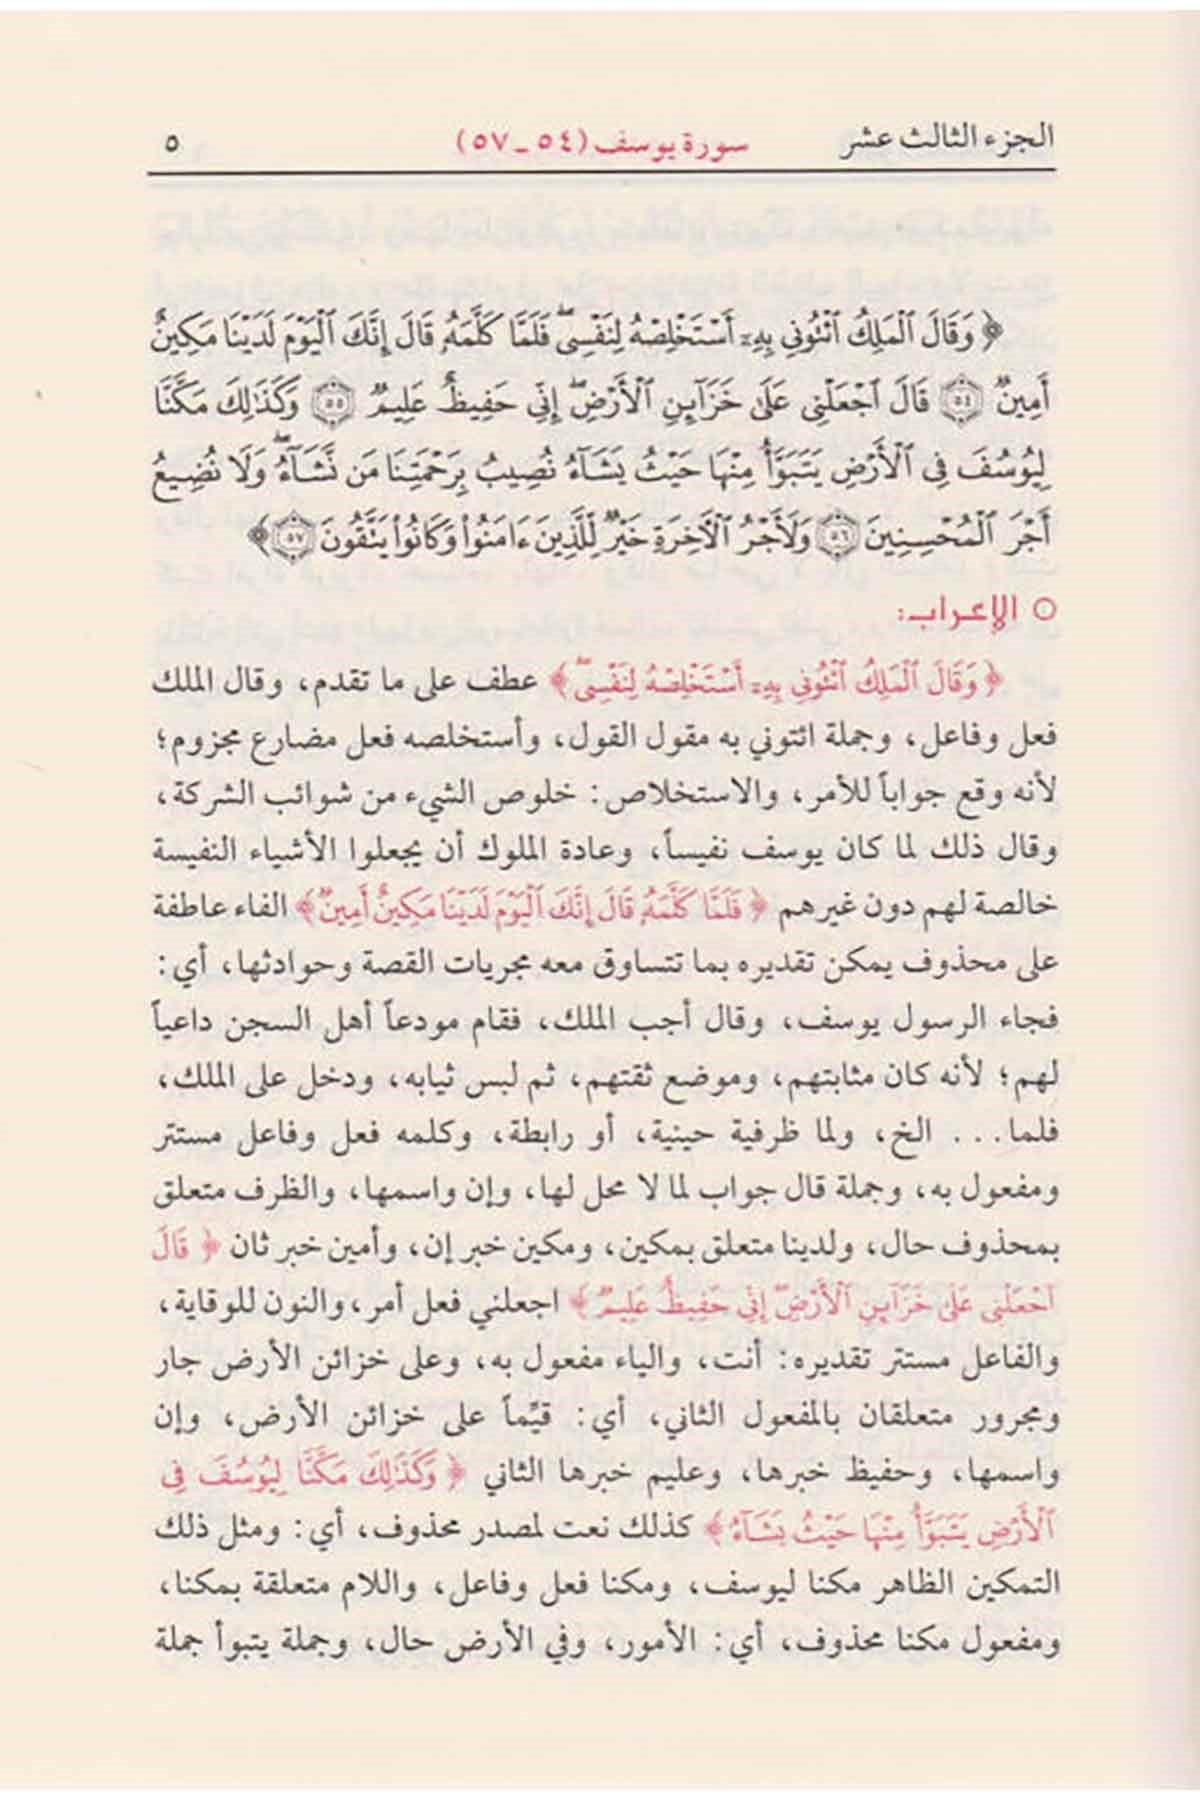 الجزء الثالث عشر سورة يوسف (٥٤ ـ ٥٧) ٥
﴿ وَقَالَ ٱلْمَلِكُ ٱئْتُونِي بِهِۦٓ أَسْتَخْلِصْهُ لِنَفْسِىۖ فَلَمَّا كَلَّمَهُۥ قَالَ إِنَّكَ ٱلْيَوْمَ لَدَيْنَا مَكِينٌ
أَمِينٌ ٥٤ قَالَ ٱجْعَلْنِى عَلَىٰ خَزَآئِنِ ٱلْأَرْضِۖ إِنِّى حَفِيظٌ عَلِيمٌ ٥٥ وَكَذَٰلِكَ مَكَّنَّا
لِيُوسُفَ فِى ٱلْأَرْضِ يَتَبَوَّأُ مِنْهَا حَيْثُ يَشَآءُ نُصِيبُ بِرَحْمَتِنَا مَن نَّشَآءُۖ وَلَا نُضِيعُ
أَجْرَ ٱلْمُحْسِنِينَ ٥٦ وَلَأَجْرُ ٱلْآخِرَةِ خَيْرٌ لِّلَّذِينَ ءَامَنُوا۟ وَكَانُوا۟ يَتَّقُونَ ٥٧ ﴾
○ الإعراب:
﴿ وَقَالَ ٱلْمَلِكُ ٱئْتُونِي بِهِۦٓ أَسْتَخْلِصْهُ لِنَفْسِىۖ ﴾ عطف على ما تقدم، وقال الملك
فعل وفاعل، وجملة ائتوني به مقول القول، وأستخلصه فعل مضارع مجزوم؛
لأنه وقع جواباً للأمر، والاستخلاص: خلوص الشيء من شوائب الشركة،
وقال ذلك لما كان يوسف نفيساً، وعادة الملوك أن يجعلوا الأشياء النفيسة
خالصة لهم دون غيرهم ﴿ فَلَمَّا كَلَّمَهُۥ قَالَ إِنَّكَ ٱلْيَوْمَ لَدَيْنَا مَكِينٌ أَمِينٌ ﴾ الفاء عاطفة
على محذوف يمكن تقديره بما تتساوق معه مجريات القصة وحوادثها، أي:
فجاء الرسول يوسف، وقال أجب الملك، فقام مودعاً أهل السجن داعياً
لهم؛ لأنه كان مثابتهم، وموضع ثقتهم، ثم لبس ثيابه، ودخل على الملك،
فلما... الخ، ولما ظرفية حينية، أو رابطة، وكلمه فعل وفاعل مستتر
ومفعول به، وجملة قال جواب لما لا محل لها، وإن واسمها، والظرف متعلق
بمحذوف حال، ولدينا متعلق بمكين، ومكين خبر إن، وأمين خبر ثان ﴿ قَالَ
ٱجْعَلْنِى عَلَىٰ خَزَآئِنِ ٱلْأَرْضِۖ إِنِّى حَفِيظٌ عَلِيمٌ ﴾ اجعلني فعل أمر، والنون للوقاية،
والفاعل مستتر تقديره: أنت، والياء مفعول به، وعلى خزائن الأرض جار
ومجرور متعلقان بالمفعول الثاني، أي: قيِّماً على خزائن الأرض، وإن
واسمها، وحفيظ خبرها، وعليم خبرها الثاني ﴿ وَكَذَٰلِكَ مَكَّنَّا لِيُوسُفَ فِى
ٱلْأَرْضِ يَتَبَوَّأُ مِنْهَا حَيْثُ يَشَآءُ ﴾ كذلك نعت لمصدر محذوف، أي: ومثل ذلك
التمكين الظاهر مكنا ليوسف، ومكنا فعل وفاعل، واللام متعلقة بمكنا،
ومفعول مكنا محذوف، أي: الأمور، وفي الأرض حال، وجملة يتبوأ جملة